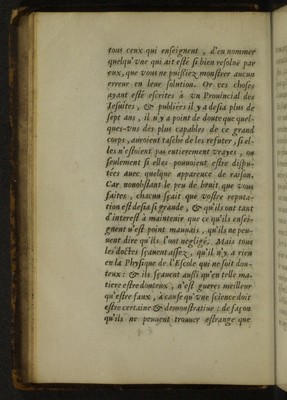 tous ceux qui enseignent, d'en nommer
quelqu'vne qui ait esté si bien resoluë par
eux, que vous ne puissiez monstrer aucun
erreur en leur solution. Or ces choses
ayant esté escrites à vn Prouincial des
Iesuites, & publiées il y a desia plus de
sept ans, il n'y a point de doute que quel-
ques-vns des plus capables de ce grand
corps, auroient tasché de les refuter, si el-
les n'estoient pas entierement vrayes, ou
seulement si elles pouuoient estre dispu-
tées auec quelque apparence de raison.
Car nonobstant le peu de bruit que vous
faites, chacun sçait que vostre reputa-
tion est desia si grande, & qu'ils ont tant
d'interest à maintenir que ce qu'ils ensei-
gnent n'est point mauuais, qu'ils ne peu-
uent dire qu'ils l'ont negligé. Mais tous
les doctes sçauent assez, qu'il n'y a rien
en la Physique de l'Escole qui ne soit dou-
teux: & ils sçauent aussi qu'en telle ma-
tiere estre douteux, n'est gueres meilleur
qu'estre faux, à cause qu'vne science doit
estre certaine & demonstratiue: de façon
qu'ils ne peuuent trouuer estrange que